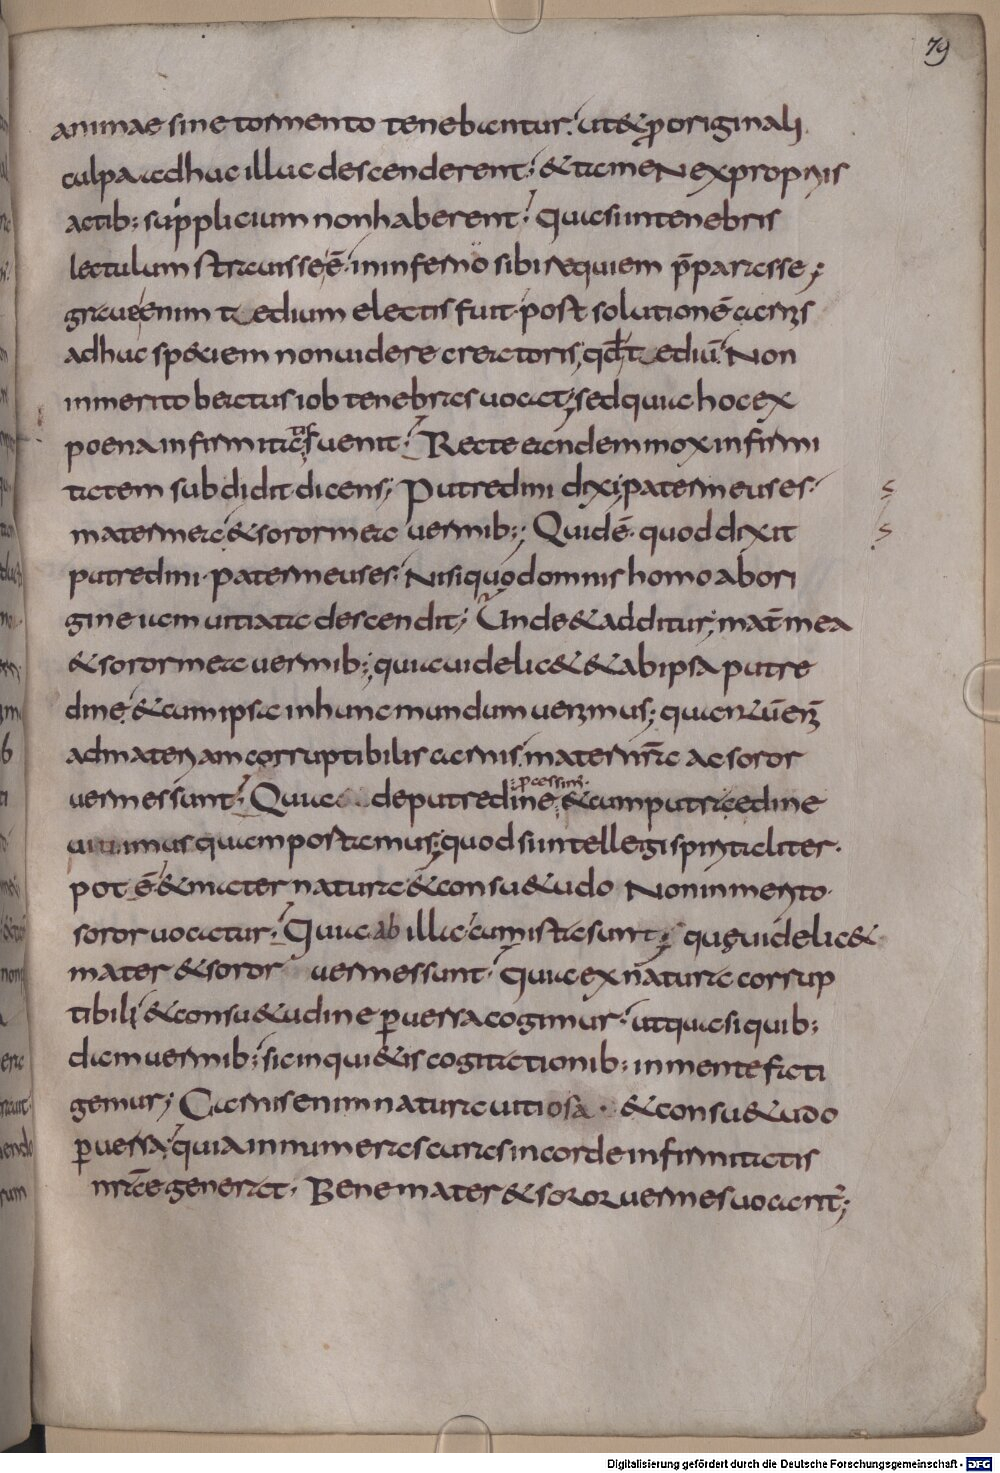 79
animae sine tormento tenebantur. ut & ꝓ originali
culpa adhuc illuc descenderent; & tamen ex propriis
actib; supplicium non haberent. Quasi in tenebris
lectulum strauisse ē. in inferno sibi requiem p̄parasse;
graue enim taedium electis fuit. post solutionē carnis
adhuc speciem non uidere creatoris, qđ taediū. Non
inmerito beatus iob tenebras uocat; sed quia hoc ex
poena infirmitatis uenit. Recte eandem mox infirmi
tatem subdidit. dicens; Putredini dixi pater meus es.
mater mea & soror mea uermib;; Quid ē. quod dixit
putredini. pater meus es. Nisi quod omnis homo ab ori
gine iam uitiata descendit; Unde & additur; mat̄ mea
& soror mea uermib; quia uidelic& & ab ipsa putre
dine & cum ipsa in hunc mundum uenimus; quantū enī
ad materiam corruptibilis carnis. mater nr̄a ac soror
uermes sunt. Quia de putredine :ꝓcessim̄. & cum putraedine
uiuimus quam portamus; quod si intellegi spiritaliter.
pot ē. & mater natura & consu&udo Non inmerito.
soror uocatur. Quia ab illa cum ista sunt; qui uidelic&
mater & soror uermes sunt. Quia ex natura corrup
tibili & consu&udine ꝑuersa cogimur. ut quasi quib;
dam uermib; sic inqui&is cogitationib; in mente fati
gemur; Carnis enim natura uitiosa. & consu&udo
ꝑuersa. quia innumeras curas in corde infirmitatis
nr̄ae generat. Bene mater & soror uermes uocant̄;
Digitalisierung gefördert durch die Deutsche Forschungsgemeinschaft - DFG